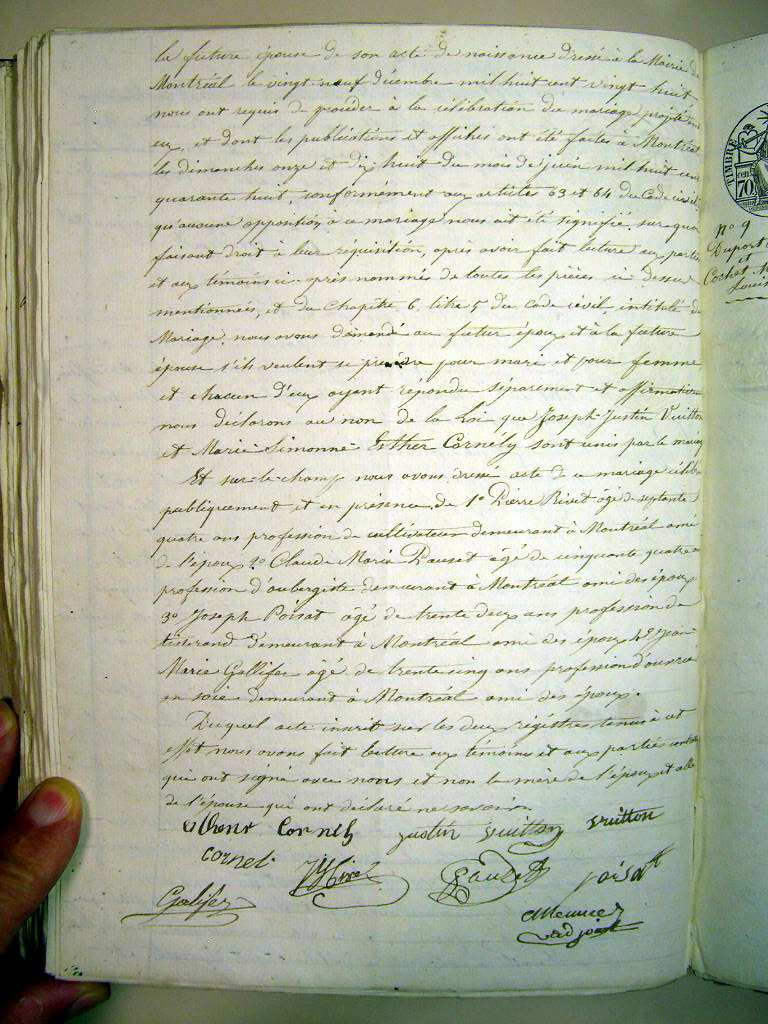 la future épouse de son acte de naissance dressé à la Mairie de
Montréal le vingt neuf décembre mil huit cent vingt huit
nous ont requis de procéder à la célébration du mariage projeté entre
eux, et dont les publications et affiches ont été faites à Montréal
les dimanches onze et dix huit du mois de juin mil huit cent
quarante huit, conformément aux articles 63 et 64 du Code civil
qu'aucune opposition à ce mariage nous ait été signifié, sur quoi
faisant droit à leur réquisition, après avoir fait lecture aux parties
et aux témoins ci-après nommés de toutes les pièces ci dessus
mentionnées, et du Chapitre 6, titre 5 du Code civil, intitulé du
Mariage, nous avons demandé au futur époux et à la future
épouse s'ils veulent se prendre pour mari et pour femme
et chacun d'eux ayant répondu séparement et affirmativement
nous déclarons au nom de la Loi que Joseph-Justin Vuitton
et Marie-Simonne-Esther Cornély sont unis par le mariage
Et sur-le-champ nous avons dressé acte de ce mariage célébré
publiquement et en présence de 1º Pierre Rivet âgé de septante
quatre ans profession de cultivateur demeurant à Montréal ami
de l'époux 2º Claude Marie Pauset âgé de cinquante quatre
profession d'aubergiste demeurant à Montréal ami des époux
3º Joseph Poisat âgé de trente deux ans profession de
tisserand demeurant à Montréal ami des époux 4º Jean
Marie Gallifer âgé de trente cinq ans profession d'ouvrier
en soie demeurant à Montréal ami des époux.
Duquel acte inscrit sur les deux régistres tenus à cet
effet nous avons fait lecture aux témoins et aux parties
qui ont signé avec nous et non la mère de l'époux et celle
de l'épouse qui ont déclaré ne savoir.
Cornely justin vuitton vuitton
cornel
Rivet Pauset poisat
Galifer
Meunier
adjoint
TIMBRE
70
nº 9
Duport
et
Cochet M
Louis